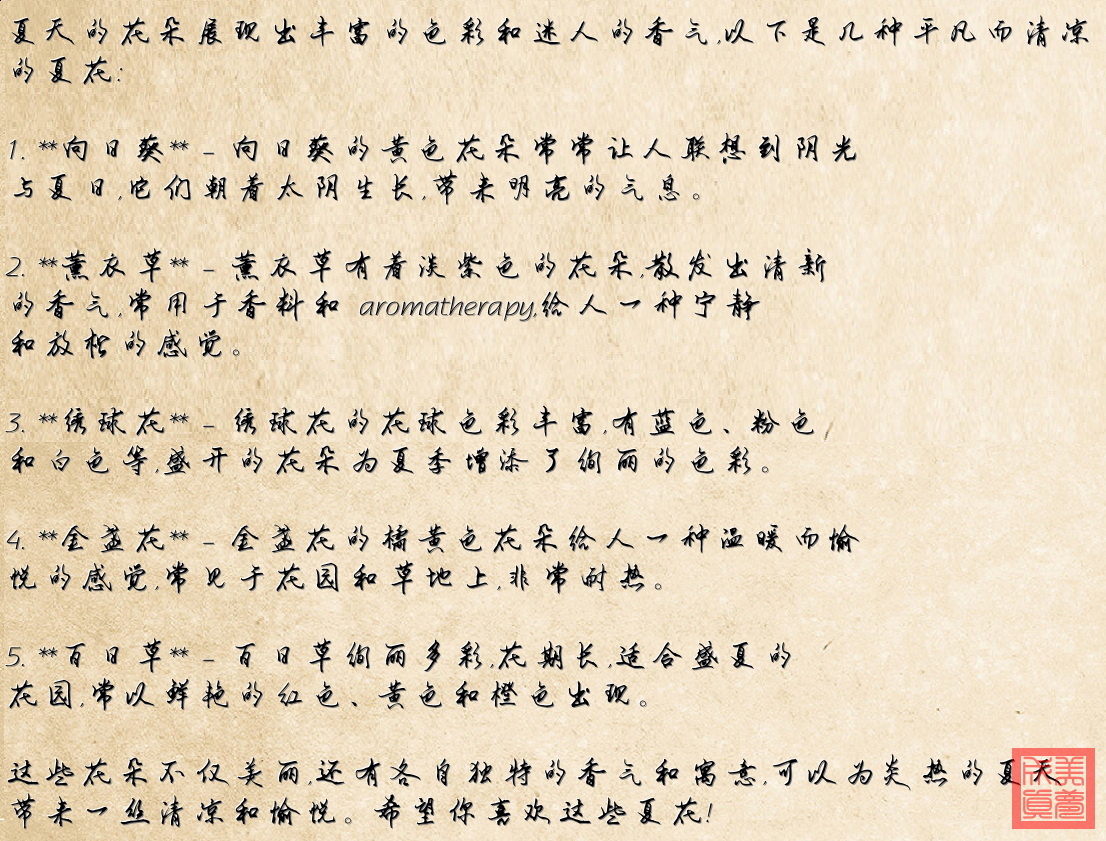 夏天的花朵展现出丰富的色彩和迷人的香气,以下是几种平凡而清凉
的夏花:
1. **向日葵** – 向日葵的黄色花朵常常让人联想到阳光
与夏日,它们朝着太阳生长,带来明亮的气息。
2. **薰衣草** – 薰衣草有着淡紫色的花朵,散发出清新
的香气,常用于香料和 aromatherapy,给人一种宁静
和放松的感觉。
3. **绣球花** – 绣球花的花球色彩丰富,有蓝色、粉色
和白色等,盛开的花朵为夏季增添了绚丽的色彩。
4. **金盏花** – 金盏花的橘黄色花朵给人一种温暖而愉
悦的感觉,常见于花园和草地上,非常耐热。
5. **百日草** – 百日草绚丽多彩,花期长,适合盛夏的
花园,常以鲜艳的红色、黄色和橙色出现。
这些花朵不仅美丽,还有各自独特的香气和寓意,可以为炎热的夏天
带来一丝清凉和愉悦。希望你喜欢这些夏花!
美梦成真